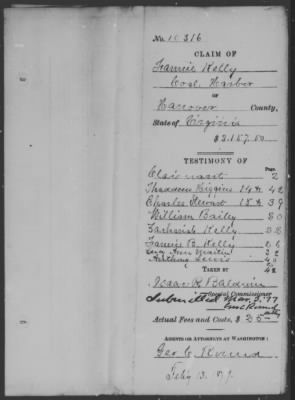 No. 10316
CLAIM OF
Fannie Kelly
Coal Harbor
OF
Hanover County,
State of Virginia
$3.157.50
TESTIMONY OF
Page.
Claimant 2
Thadeus Higgins 14 & 42
Charles Stewart 18 & 39
William Baily 50
Zachariah Kelly
Fannie B. Kelly 26
Anthony Lewis 40
42
TAKEN BY
Isaac R. Baldwin
Special Commissioner
Submitted Mar. 3. 77
Actual Fees and Costs, $25
AGENTS OR ATTORNEYS AT WASHINGTON:
Geo C.
Feby 13.